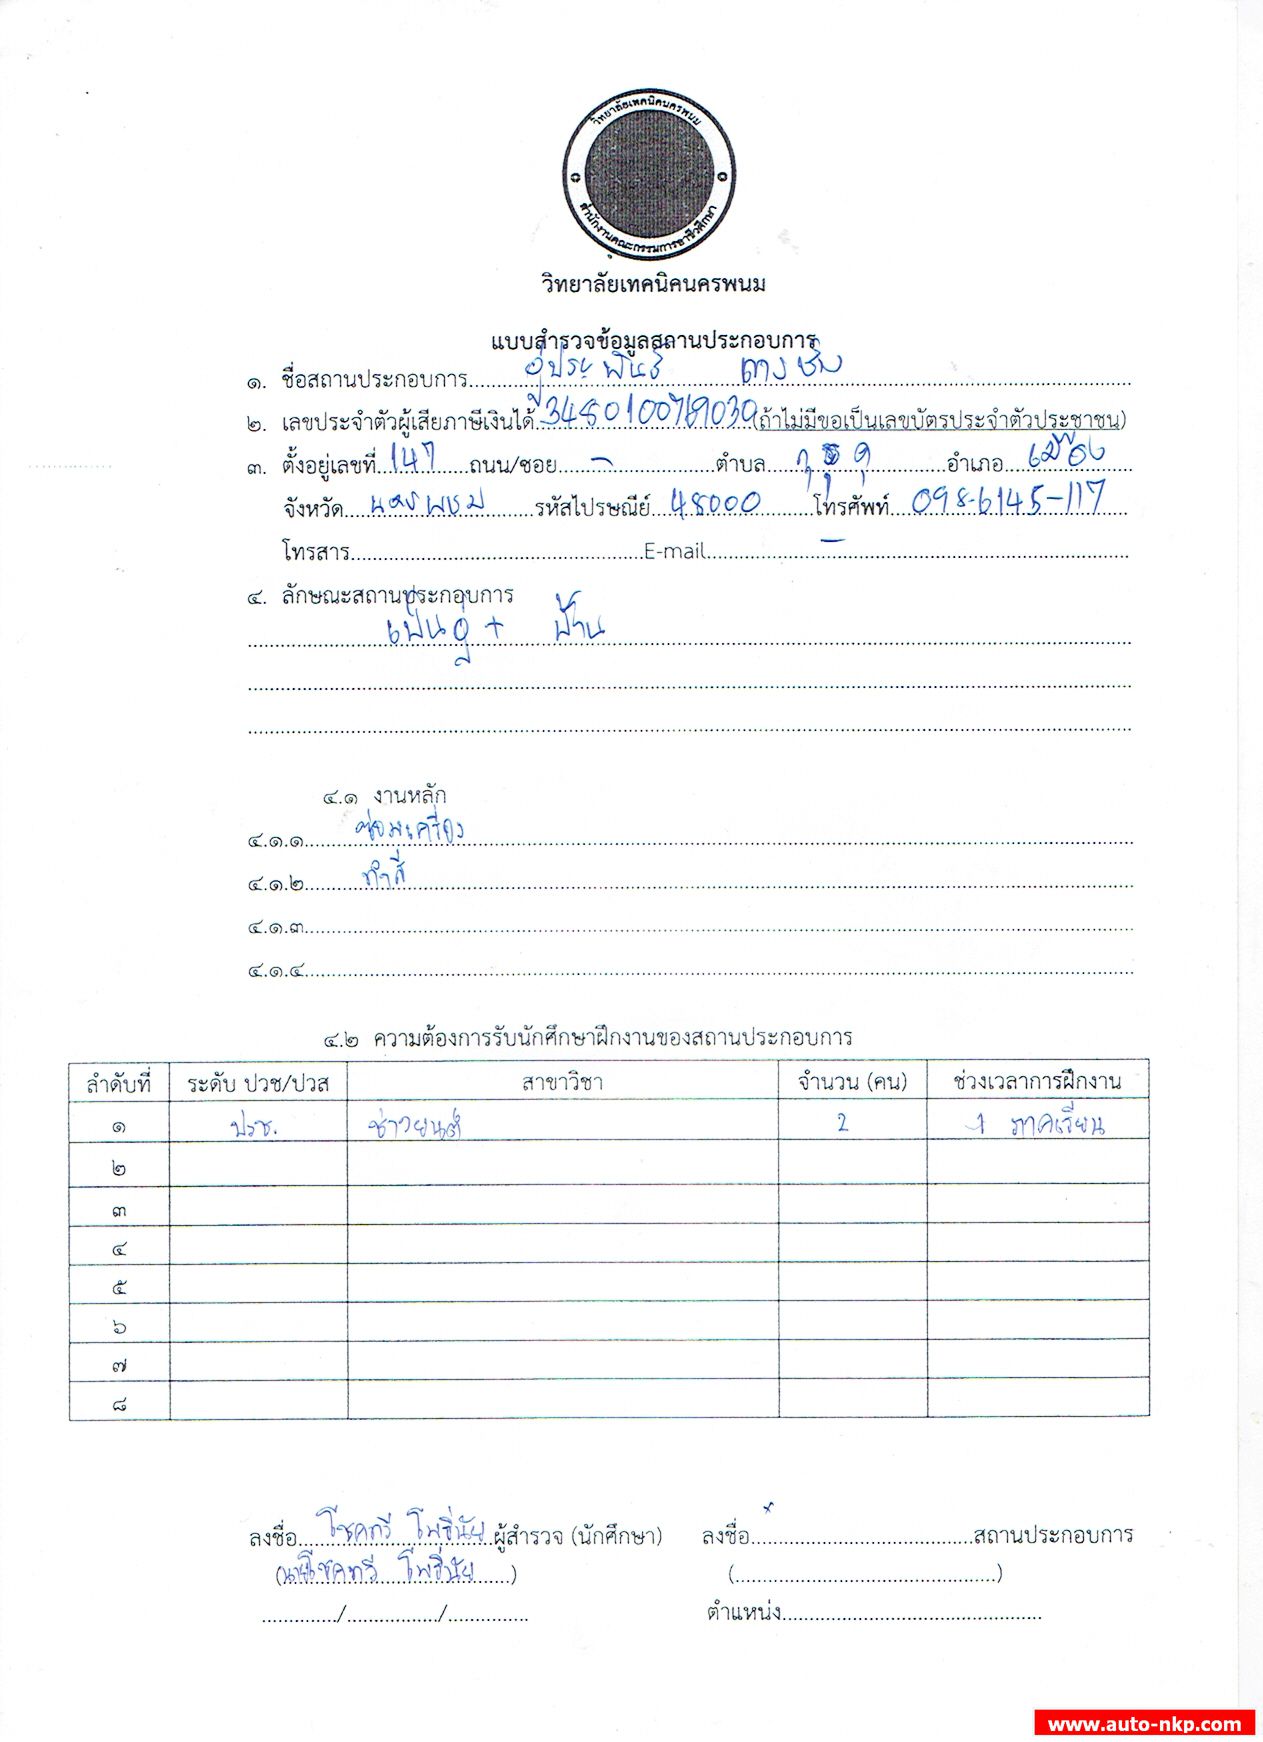 วิทยาลัยเทคนิคนครพนม
สำนักงานคณะกรรมการอาชีวศึกษา
วิทยาลัยเทคนิคนครพนม
แบบสำรวจข้อมูลสถานประกอบการ
๑. ชื่อสถานประกอบการ อู่ประพันธ์
๒. เลขประจำตัวผู้เสียภาษีเงินได้ 3480100769030 (ถ้าไม่มีขอเป็นเลขบัตรประจำตัวประชาชน)
๓. ตั้งอยู่เลขที่ 147 ถนน/ซอย - ตำบล อำเภอ เมือง
จังหวัด นครพนม รหัสไปรษณีย์ 48000 โทรศัพท์ 098-6145-117
โทรสาร E-mail -
๔. ลักษณะสถานประกอบการ
เป็นอู่ + บ้าน
๔.๑ งานหลัก
๔.๑.๑ ซ่อมเครื่อง
๔.๑.๒ ทำสี
๔.๑.๓
๔.๑.๔
๔.๒ ความต้องการรับนักศึกษาฝึกงานของสถานประกอบการ
ลำดับที่ ระดับ ปวช/ปวส สาขาวิชา จำนวน (คน) ช่วงเวลาการฝึกงาน
๑ ปวช. ช่างยนต์ 2 1 ภาคเรียน
๒
๓
๔
๕
๖
๗
๘
ลงชื่อ โชคทวี โพธิ่นัย ผู้สำรวจ (นักศึกษา) ลงชื่อ x สถานประกอบการ
(นายโชคทวี โพธิ่นัย) ( )
/ / ตำแหน่ง
www.auto-nkp.com